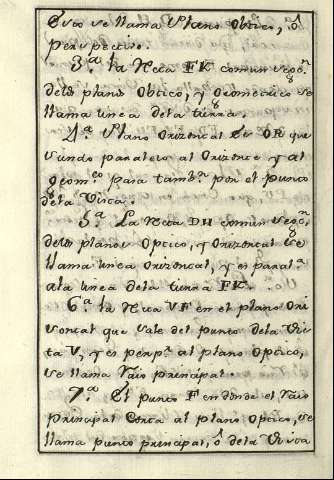 Esto se llama Plano Obtico, ó
Perspectivo.
3.ª la Recta FK comun secc.n
delos planos Obtico, y Geometrico se
llama linea dela tierra.
4.ª Plano Orizontal Es DR que
siendo paralelo al Orizonte y al
Geom.co para tamb.n por el punto
dela Vista.
5.ª La Recta DH comun secc.n
delos planos Optico, y Orizontal se
llama linea Orizontal, y es paral.ª
ala linea dela tierra FK.
6.ª la Recta VF en el plano Ori
zontal que sale del punto dela Vis
ta V, y es perp.ª al plano Optico,
se llama Raio principal.
7.ª El punto F en donde el Raio
principal Corta al plano Optico, se
llama punto principal, ó dela Vista